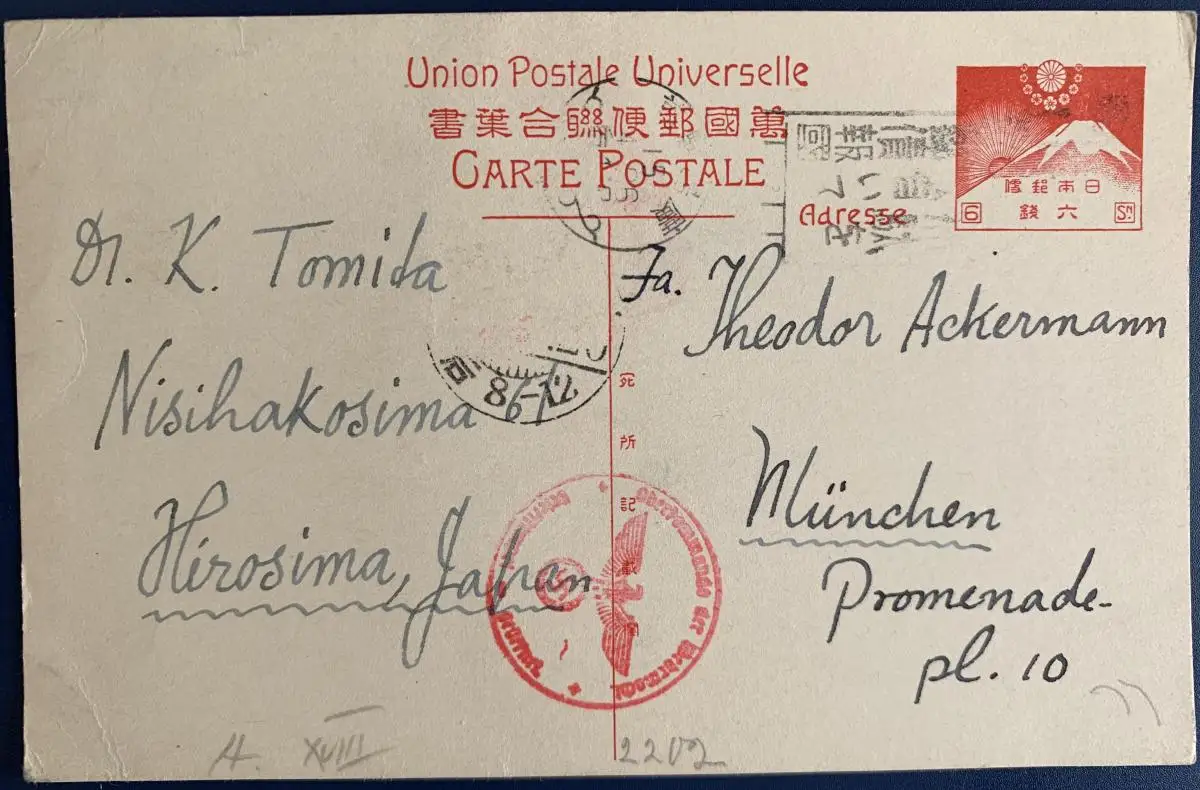 Union Postale Universelle
書葉合聯便郵國萬
CARTE POSTALE
Adresse
便郵本日
錢六
6
Sn
Dr. K. Tomita
Nisihakosima
Hirosima, Japan
Fa. Theodor Ackermann
München
Promenade-
pl. 10
所
記
載
Oberkommando der Wehrmacht
Geprüft
A. XVIII
2202